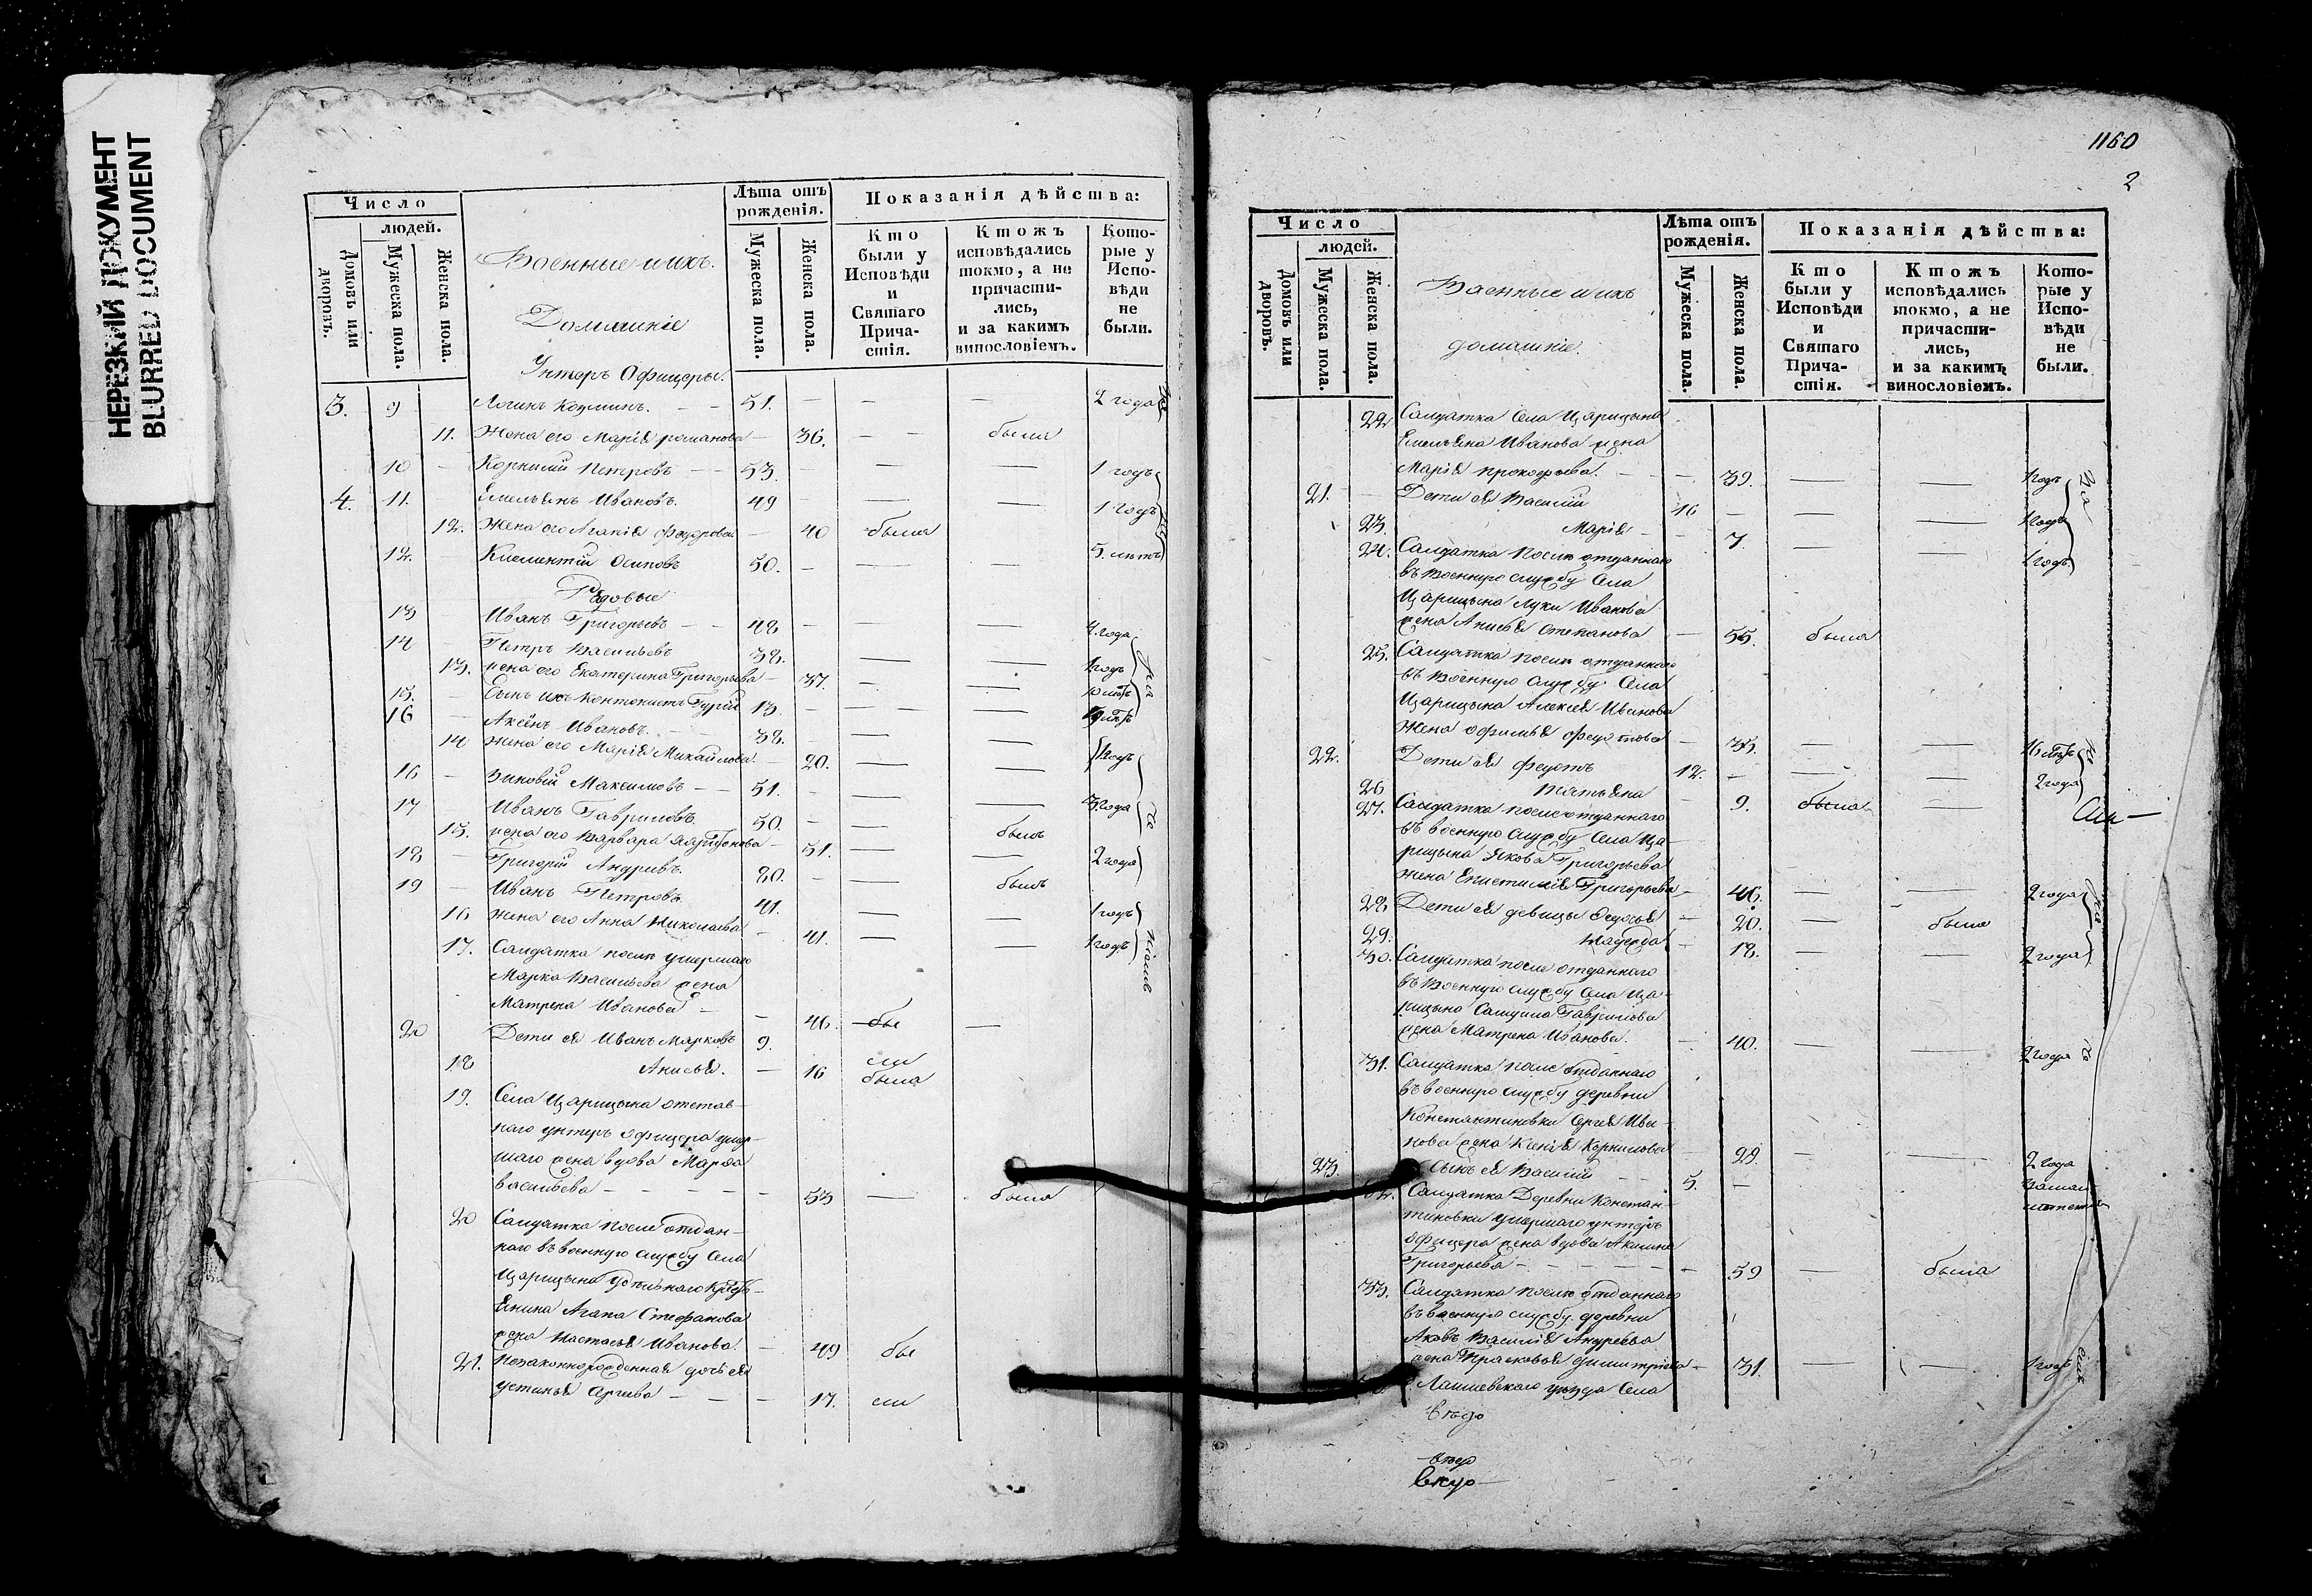 НЕРЕЗКИЙ ДОКУМЕНТ
BLURRED DOCUMENT
Число
людей.
Домовъ или дворовъ.
Мужеска пола.
Женска пола.
Военные и ихъ
Домашніе
Лѣта отъ рожденія.
Мужеска пола.
Женска пола.
Показанія дѣйства:
Кто были у Исповѣди и Святаго Прича-стія.
Ктожъ исповѣдались токмо, а не причасти-лись, и за какимъ винословіемъ.
Кото-рые у Испо-вѣди не были.
Унтеръ Офицеры.
3. 9 51. — — 2 года
11. Жена его Марія романова — 36. — — была
10 — Корнилій Петровъ — — 53. — — — 1 годъ
4. 11. Емельянъ Ивановъ. 49 — — 1 годъ
12. Жена его Агапія федорова — 40 была
12. Климентій Осиповъ 50. — — — 5 лѣтъ
Рядовые
13 Иванъ Григорьевъ — — 48 — — — 4 года
14 Петръ Васильевъ 38. — — 1 годъ
13. жена его Екатерина Григорьева — 37. — —
15. Сынъ ихъ Кантонистъ Гурій 13. — — —
16 Аксёнъ Ивановъ. 38. — —
14 жена его Марія Михайлова. — 20. — — 1 годъ
16 — Зиновій Максимовъ — — 51. — — —
17 Иванъ Гавриловъ. 50. — — — 3 года
15. жена его Варвара — 51. — былъ
18 — Григорій Андреевъ. 80. — — — 2 года
19 — Иванъ Петровъ 41. былъ
16 жена его Анна Николаева — 41. — — 1 годъ
17. Салдатка послѣ умершаго — — 1 годъ
Марка Васильева жена
Матрена Иванова — — 46. бы —
20 Дети ея Иванъ Марковъ 9.
18 Анисья. — 16 ли
была
19. Села Царицына отстав-
наго унтеръ офицера умер-
шаго жена вдова Марѳа
васильева — — — — — 53 — была
20 Салдатка послѣ отдан-
наго въ военную службу Села
Царицына удѣльнаго
Агапа Стефанова
жена Настасья Иванова. — 49 бы
21. Незаконнорожденная дочь ея
устинья — — — 17. ли
1160
2
Число
людей.
Домовъ или дворовъ.
Мужеска пола.
Женска пола.
Военные и ихъ
домашніе.
Лѣта отъ рожденія.
Мужеска пола.
Женска пола.
Показанія дѣйства:
Кто были у Исповѣди и Святаго Прича-стія.
Ктожъ исповѣдались токмо, а не причасти-лись, и за какимъ винословіемъ.
Кото-рые у Испо-вѣди не были.
22 Салдатка Села Царицына
Емельяна Иванова жена
Марія прокофьева. — — 39. — — 1 годъ
21. — Дети ея Василій 16 — — 1 годъ
23. Марія — — 7. — — 1 годъ
24. Салдатка послѣ отданнаго
въ военную службу Села
Царицына Луки Иванова
жена Анисья Степанова — 55. была
25. Салдатка послѣ отданнаго
въ военную службу Села
Царицына Алексѣя Иванова
Жена офимья федотова — 35. — —
22. Дети ея федотъ 12. — — — 2 года
26 татьяна — 9. была —
27. Салдатка послѣ отданнаго
въ военную службу Села Ца-
рицына Якова Григорьева
жена Григорьева — 46. — — 2 года
28 Дети ея девицы Ѳедосья — 20. — была
29. надежда — 18. — — 2 года
30. Салдатка послѣ отданнаго
въ военную службу Села Ца-
рицына Самуила Гаврилова
жена Матрена Иванова. — 40. — — 2 года
31. Салдатка послѣ отданнаго
въ военную службу деревни
Константиновки Сергѣя Ива-
нова жена Ксенія Корнилова — 29. — — 2 года
23. Сынъ ея Василій — — 5. —
32. Салдатка Деревни Констан-
тиновки умершаго унтеръ
офицера жена вдова Акилина
Григорьева — — — — — 59 — была
33. Салдатка послѣ отданнаго
въ военную службу деревни
Василія Андреева
жена Прасковья димитріева — 31. — — 1 годъ
Лаишевскаго уѣзда Села